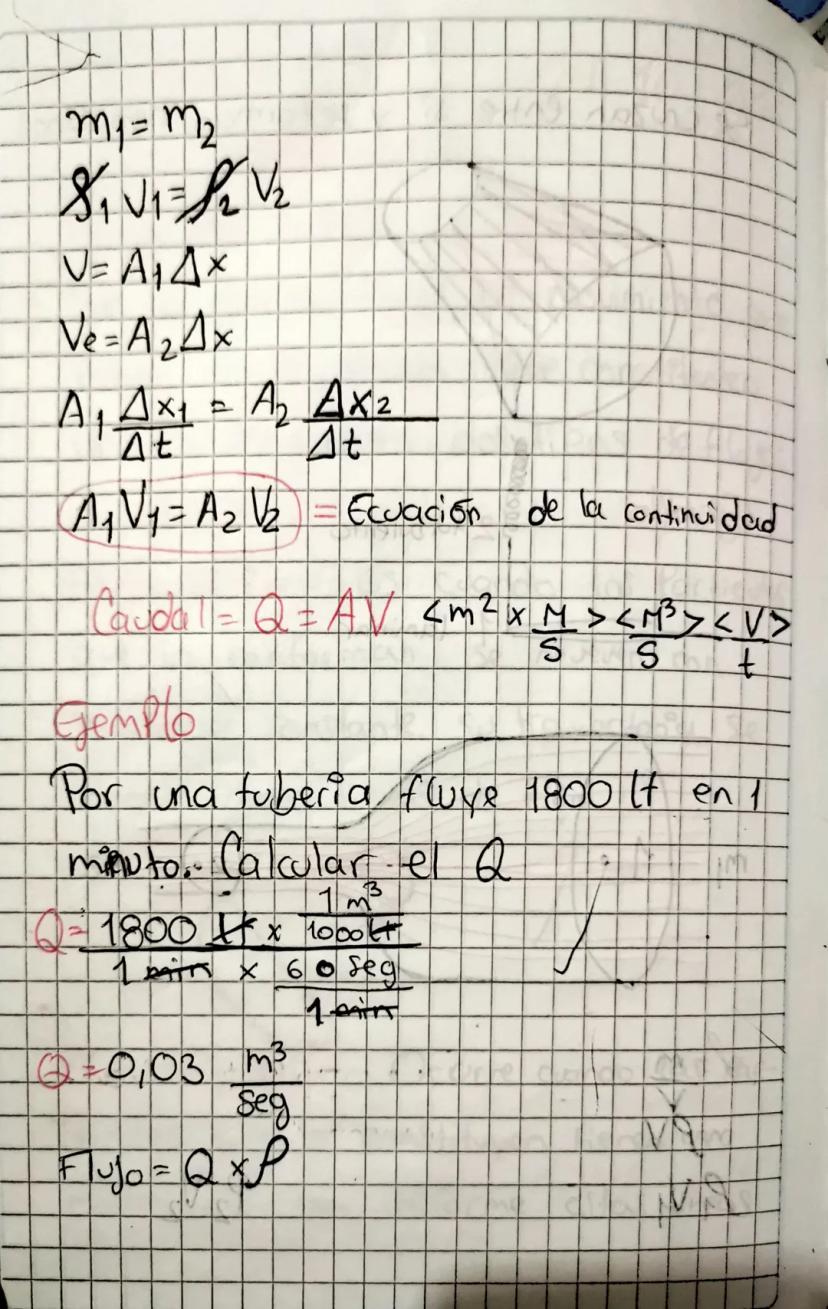 m₁ = m₂
ρ₁ V₁ = ρ₂ V₂
V = A₁ Δx
Ve = A₂ Δx
A₁ Δx₁/Δt = A₂ Δx₂/Δt
A₁ V₁ = A₂ V₂ = Ecuación de la continuidad
Caudal = Q = AV <m² x M/S> <M³/S> <V/t>
Ejemplo
Por una tubería fluye 1800 lt en 1
minuto. Calcular el Q
Q = (1800 lt x 1 m³/1000 lt)/(1 min x 60 seg/1 min)
Q = 0,03 m³/seg
Flujo = Q x ρ